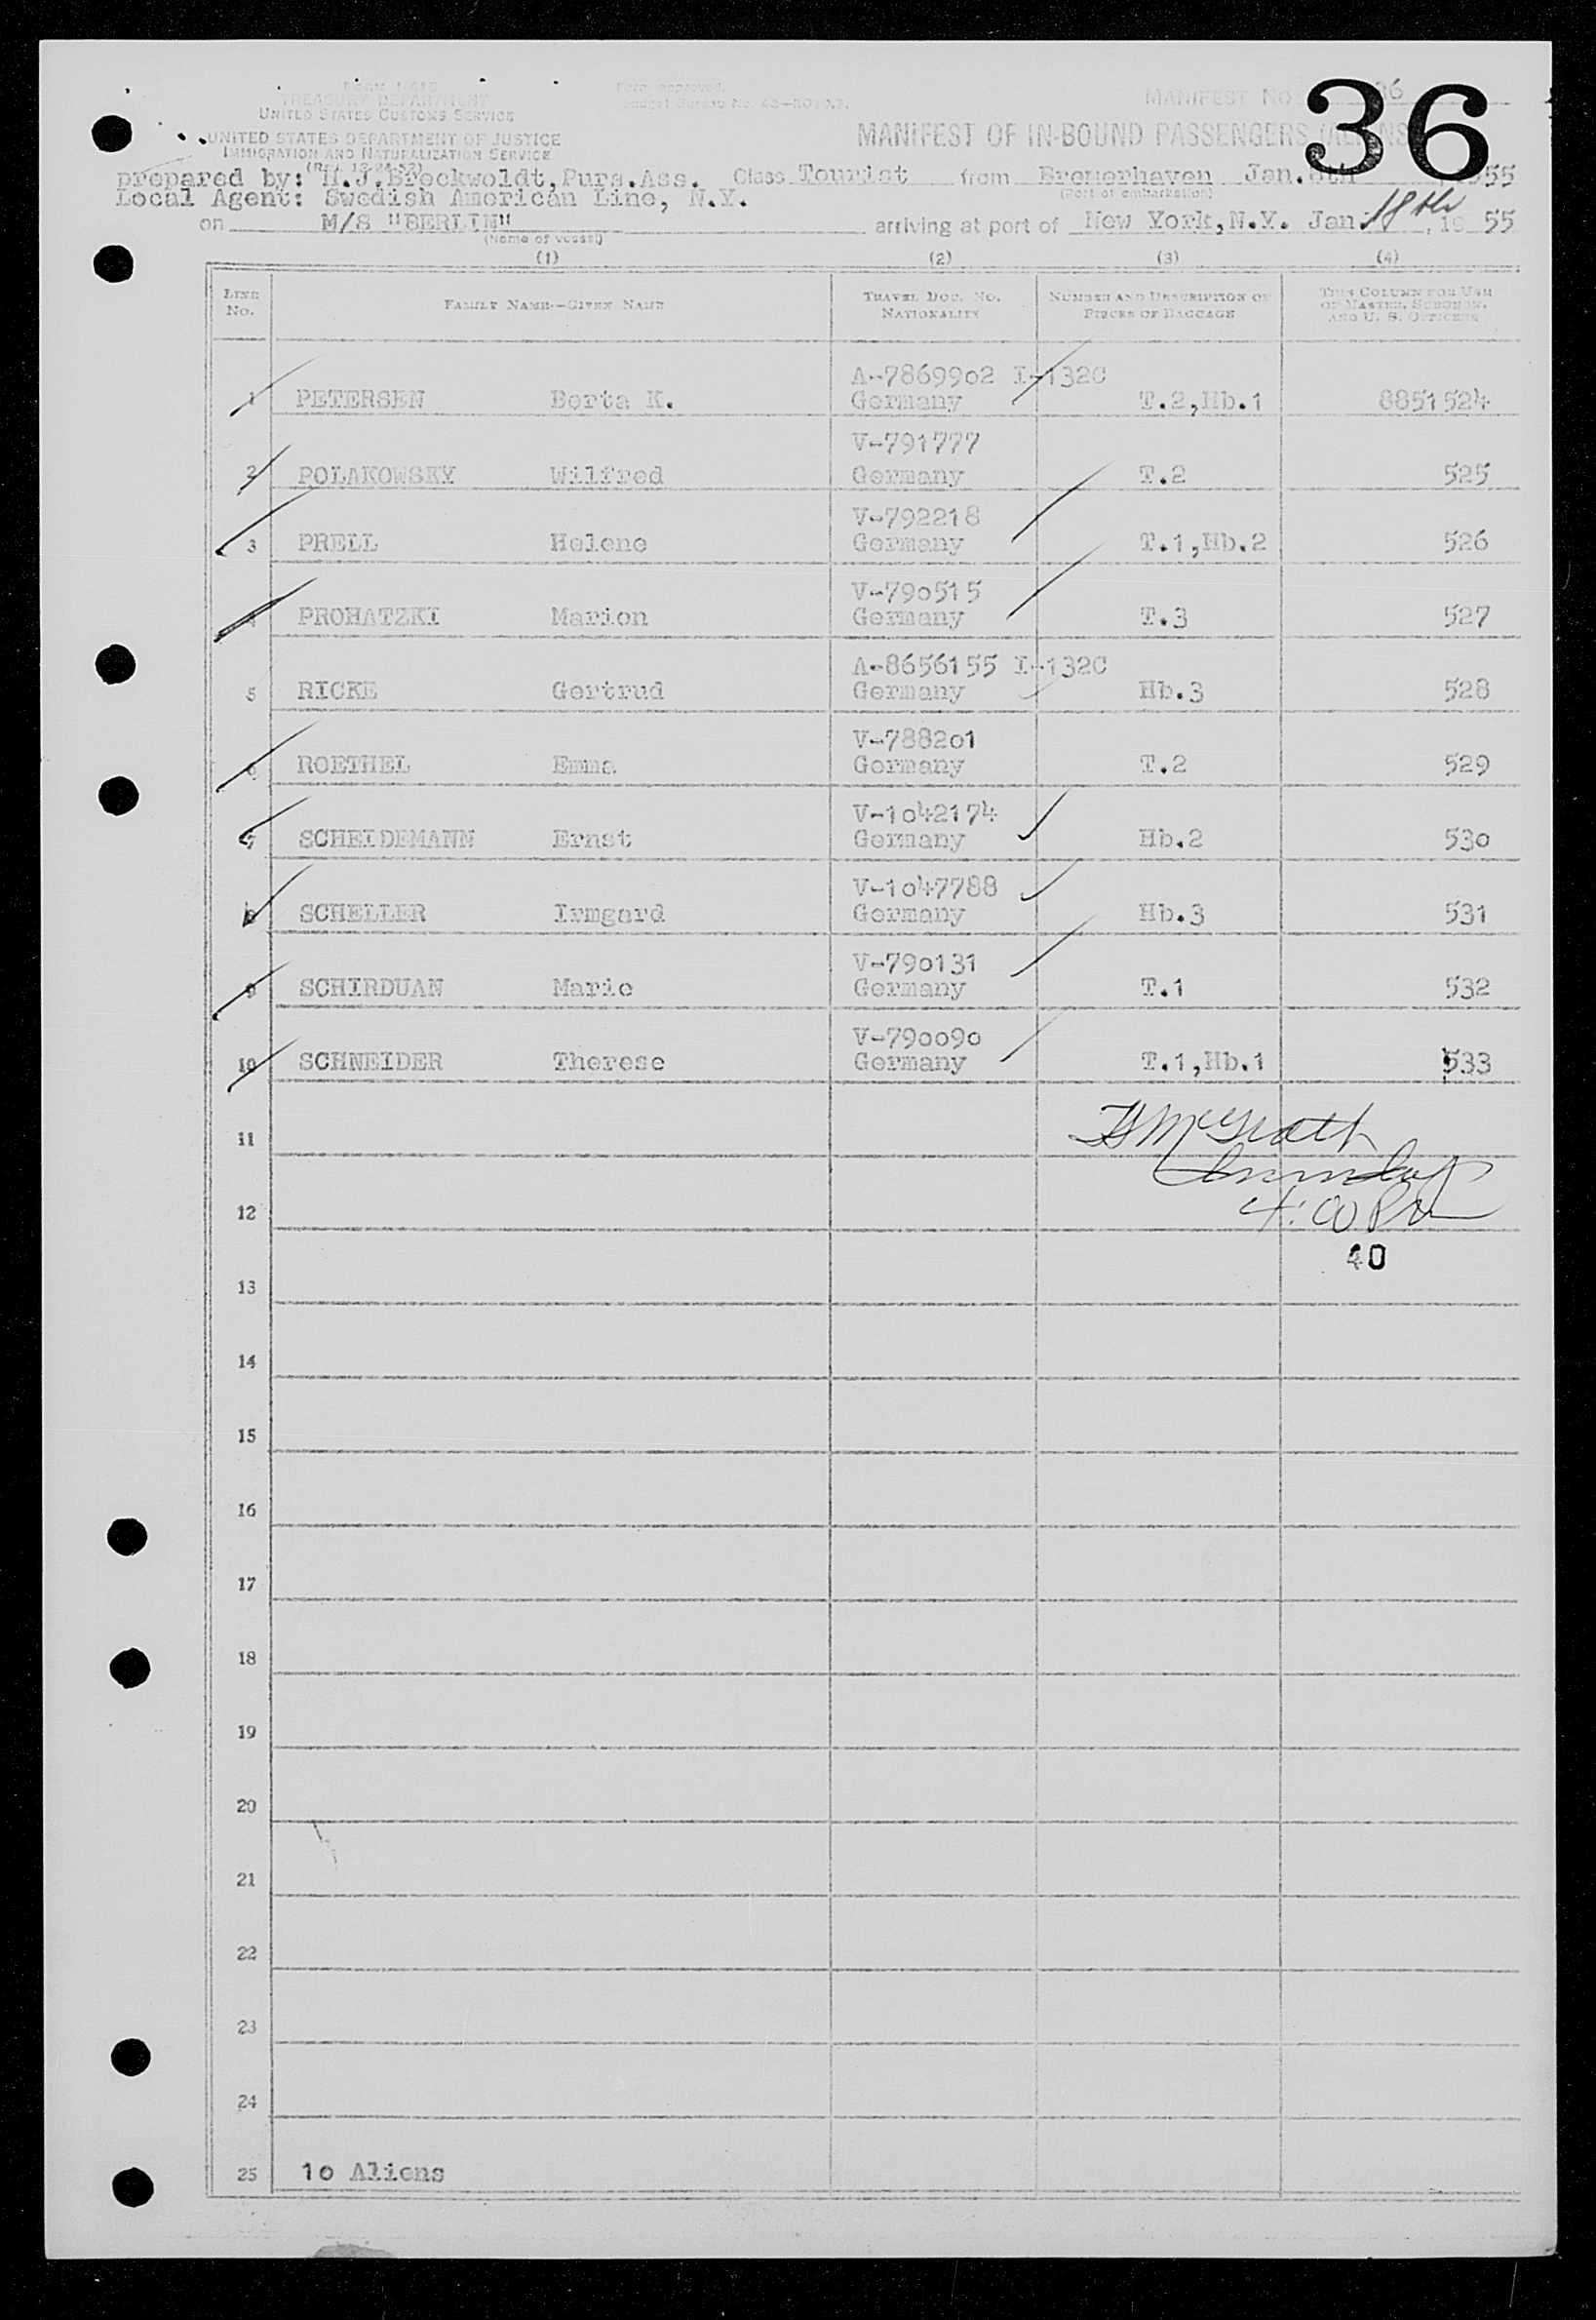 TREASURY DEPARTMENT
UNITED STATES CUSTOMS SERVICE
UNITED STATES DEPARTMENT OF JUSTICE
IMMIGRATION AND NATURALIZATION SERVICE
Form approved.
Budget Bureau No.
MANIFEST No. 36
36
MANIFEST OF IN-BOUND PASSENGERS
prepared by: H.J.Brockwoldt,Purs.Ass. Class Tourist from Bremerhaven Jan. 55
(Port of embarkation)
Local Agent: Swedish American Line, N.Y.
on M/S "BERLIN" arriving at port of New York,N.Y. Jan. 18th, 19 55
(Name of vessel)
(1) (2) (3) (4)
LINE No. FAMILY NAME—GIVEN NAME TRAVEL DOC. NO. NATIONALITY NUMBER AND DESCRIPTION OF PIECES OF BAGGAGE THIS COLUMN FOR USE OF MASTER, SURGEON, AND U. S. OFFICERS
A-7869902 I-132C
1 PETERSEN Berta K. Germany T.2,Hb.1 8851524
V-791777
2 POLAKOWSKY Wilfred Germany T.2 525
V-792218
3 PRELL Helene Germany T.1,Hb.2 526
V-790515
4 PROHATZKI Marion Germany T.3 527
A-8656155 I-132C
5 RICKE Gertrud Germany Hb.3 528
V-788201
6 ROETHEL Emma Germany T.2 529
V-1042174
7 SCHEIDEMANN Ernst Germany Hb.2 530
V-1047788
8 SCHELLER Irmgard Germany Hb.3 531
V-790131
9 SCHIRDUAN Marie Germany T.1 532
V-790090
10 SCHNEIDER Therese Germany T.1,Hb.1 533
11 McGrath
12 4:00 Pm
40
13
14
15
16
17
18
19
20
21
22
23
24
25 10 Aliens